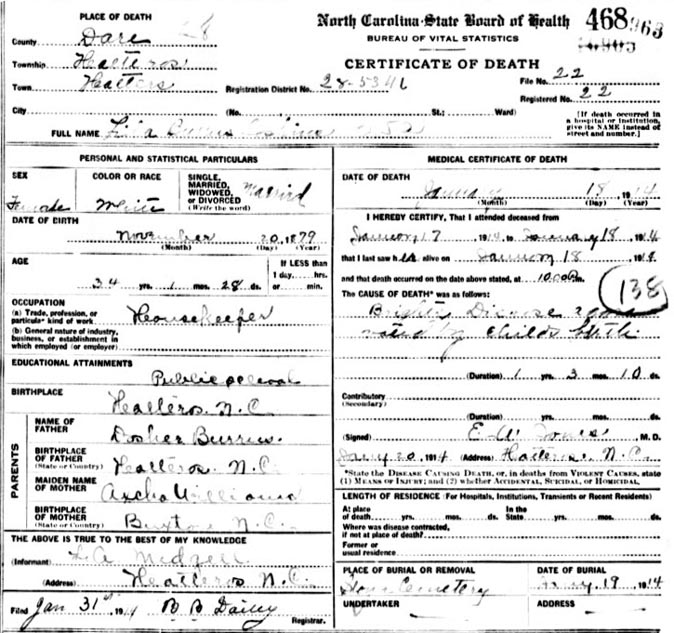 PLACE OF DEATH
North Carolina State Board of Health
468963
BUREAU OF VITAL STATISTICS
CERTIFICATE OF DEATH
County Dare
Township Hatteras
Town Hatteras
Registration District No. 28-5341
File No. 22
Registered No. 22
City (No. St.; Ward)
[If death occurred in a hospital or institution, give its NAME instead of street and number.]
FULL NAME
PERSONAL AND STATISTICAL PARTICULARS
SEX
Female
COLOR OR RACE
White
SINGLE, MARRIED, WIDOWED, OR DIVORCED (Write the word)
Married
DATE OF BIRTH
November 20, 1879
(Month) (Day) (Year)
AGE
34 yrs. 1 mos. 28 ds.
If LESS than 1 day, hrs. or min.
OCCUPATION
(a) Trade, profession, or particular kind of work
Housekeeper
(b) General nature of industry, business, or establishment in which employed (or employer)
EDUCATIONAL ATTAINMENTS
Public school
BIRTHPLACE
Hatteras. N.C.
PARENTS
NAME OF FATHER
Dosher Burrus.
BIRTHPLACE OF FATHER (State or Country)
Hatteras. N.C.
MAIDEN NAME OF MOTHER
Williams
BIRTHPLACE OF MOTHER (State or Country)
Buxton N.C.
THE ABOVE IS TRUE TO THE BEST OF MY KNOWLEDGE
(Informant)
(Address) Hatteros N.C.
Filed Jan 31st 1914
Registrar.
MEDICAL CERTIFICATE OF DEATH
DATE OF DEATH
January 18, 1914
(Month) (Day) (Year)
I HEREBY CERTIFY, That I attended deceased from
17, 1914, to January 18, 1914
that I last saw her alive on 18, 1914
and that death occurred on the date above stated, at m.
The CAUSE OF DEATH* was as follows:
138
Brights Disease
by Childs birth
(Duration) 1 yrs. 3 mos. 10 ds.
Contributory
(Secondary)
(Duration) yrs. mos. ds.
(Signed) E. W. Jones M.D.
20, 1914 (Address) Hatteras. N.C.
*State the DISEASE CAUSING DEATH, or, in deaths from VIOLENT CAUSES, state (1) MEANS OF INJURY; and (2) whether ACCIDENTAL, SUICIDAL, or HOMICIDAL.
LENGTH OF RESIDENCE (For Hospitals, Institutions, Transients or Recent Residents)
At place of death yrs. mos. ds. In the State yrs. mos. ds.
Where was disease contracted, if not at place of death?
Former or usual residence
PLACE OF BURIAL OR REMOVAL
Cemetery
DATE OF BURIAL
19, 1914
UNDERTAKER
ADDRESS